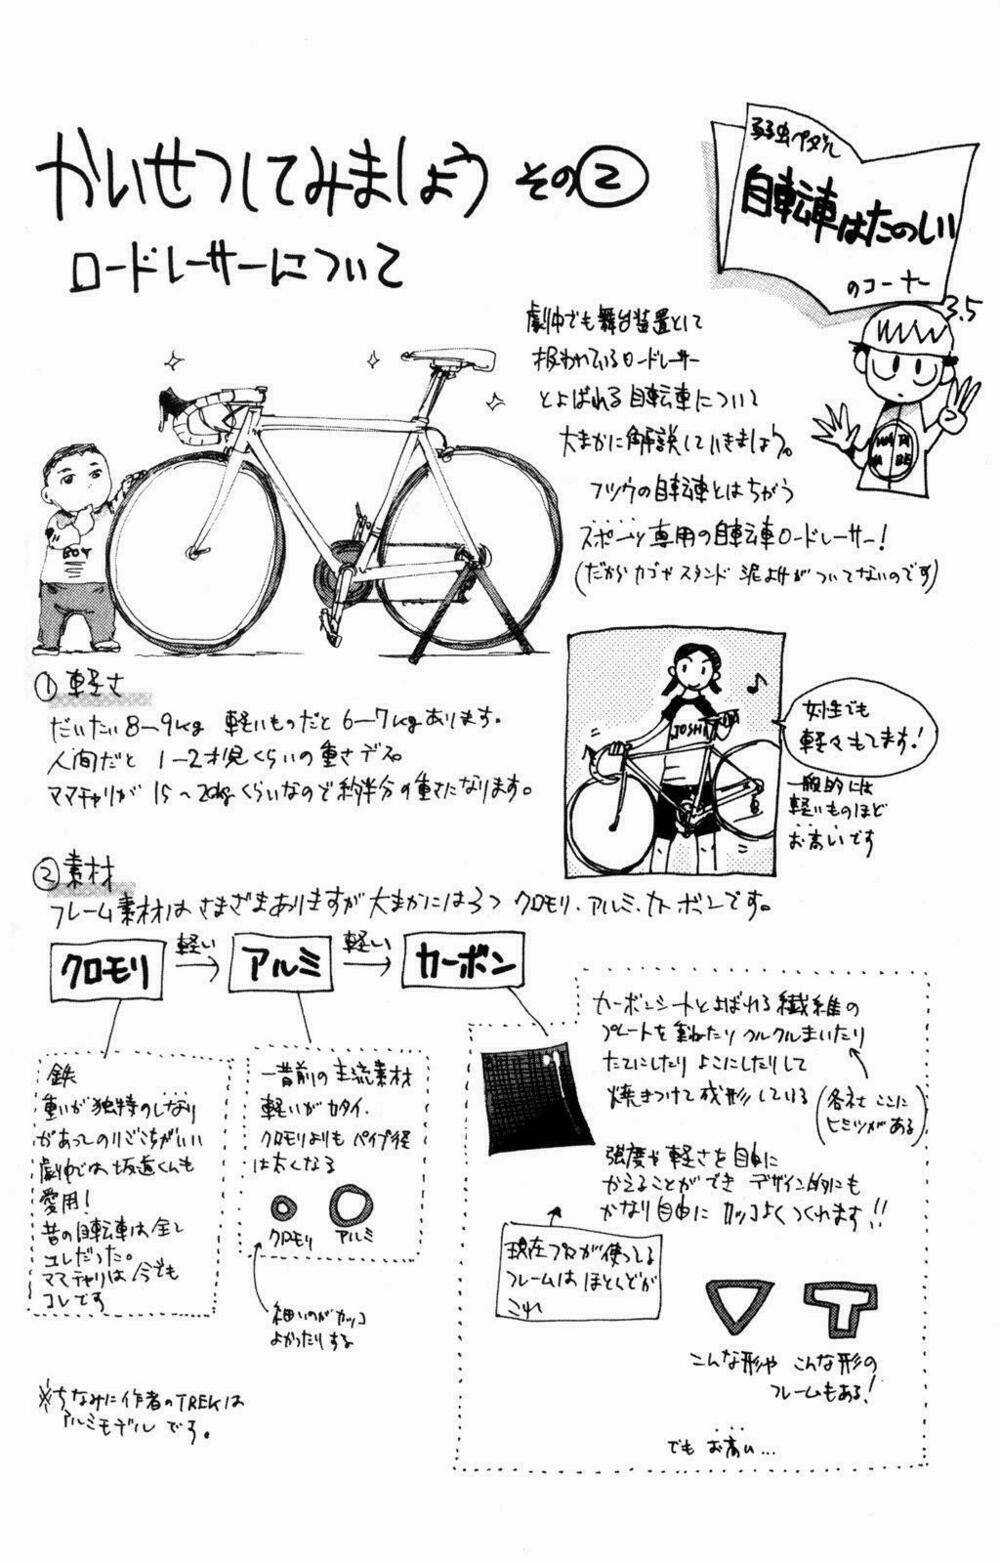 かいせつしてみましょう その②
ロードレーサーについて
弱虫ペダル
自転車はたのしい
のコーナー
3.5
劇中でも舞台装置として
扱われているロードレーサー
とよばれる自転車について
大まかに解説していきましょう。
フツウの自転車とはちがう
スポーツ専用の自転車ロードレーサー!
(だからカゴやスタンド 泥よけがついてないのです)
WA TA
NA BE
BOY
①軽さ
だいたい8―9kg 軽いものだと6―7kgあります。
人間だと 1―2才児くらいの重さデス。
ママチャリが15〜20kgくらいなので約半分の重さになります。
JOSHI
女性でも
軽々もてます!
一般的には
軽いものほど
お高いです
②素材
フレーム素材はさまざまありますが大まかには3つ クロモリ、アルミ、カーボンです。
クロモリ 軽い→ アルミ 軽い→ カーボン
鉄
重いが独特のしなり
があってのりごこちがいい
劇中では坂道くんも
愛用!
昔の自転車は全て
コレだった。
ママチャリは今でも
コレです
一昔前の主流素材
軽いがカタイ.
クロモリよりも パイプ径
は太くなる
クロモリ アルミ
細いのがカッコ
よかったりする
カーボンシートとよばれる繊維の
プレートを重ねたりクルクルまいたり
たてにしたり よこにしたりして
焼きつけて成形している
(各社ここに
ヒミツがある)
強度や軽さを自由に
かえることができ デザイン的にも
かなり自由に カッコよくつくれます!!
現在プロが使ってる
フレームは ほとんどが
これ
こんな形や こんな形の
フレームもある!
でも お高い…
※ちなみに作者のTREKは
アルミモデルです。